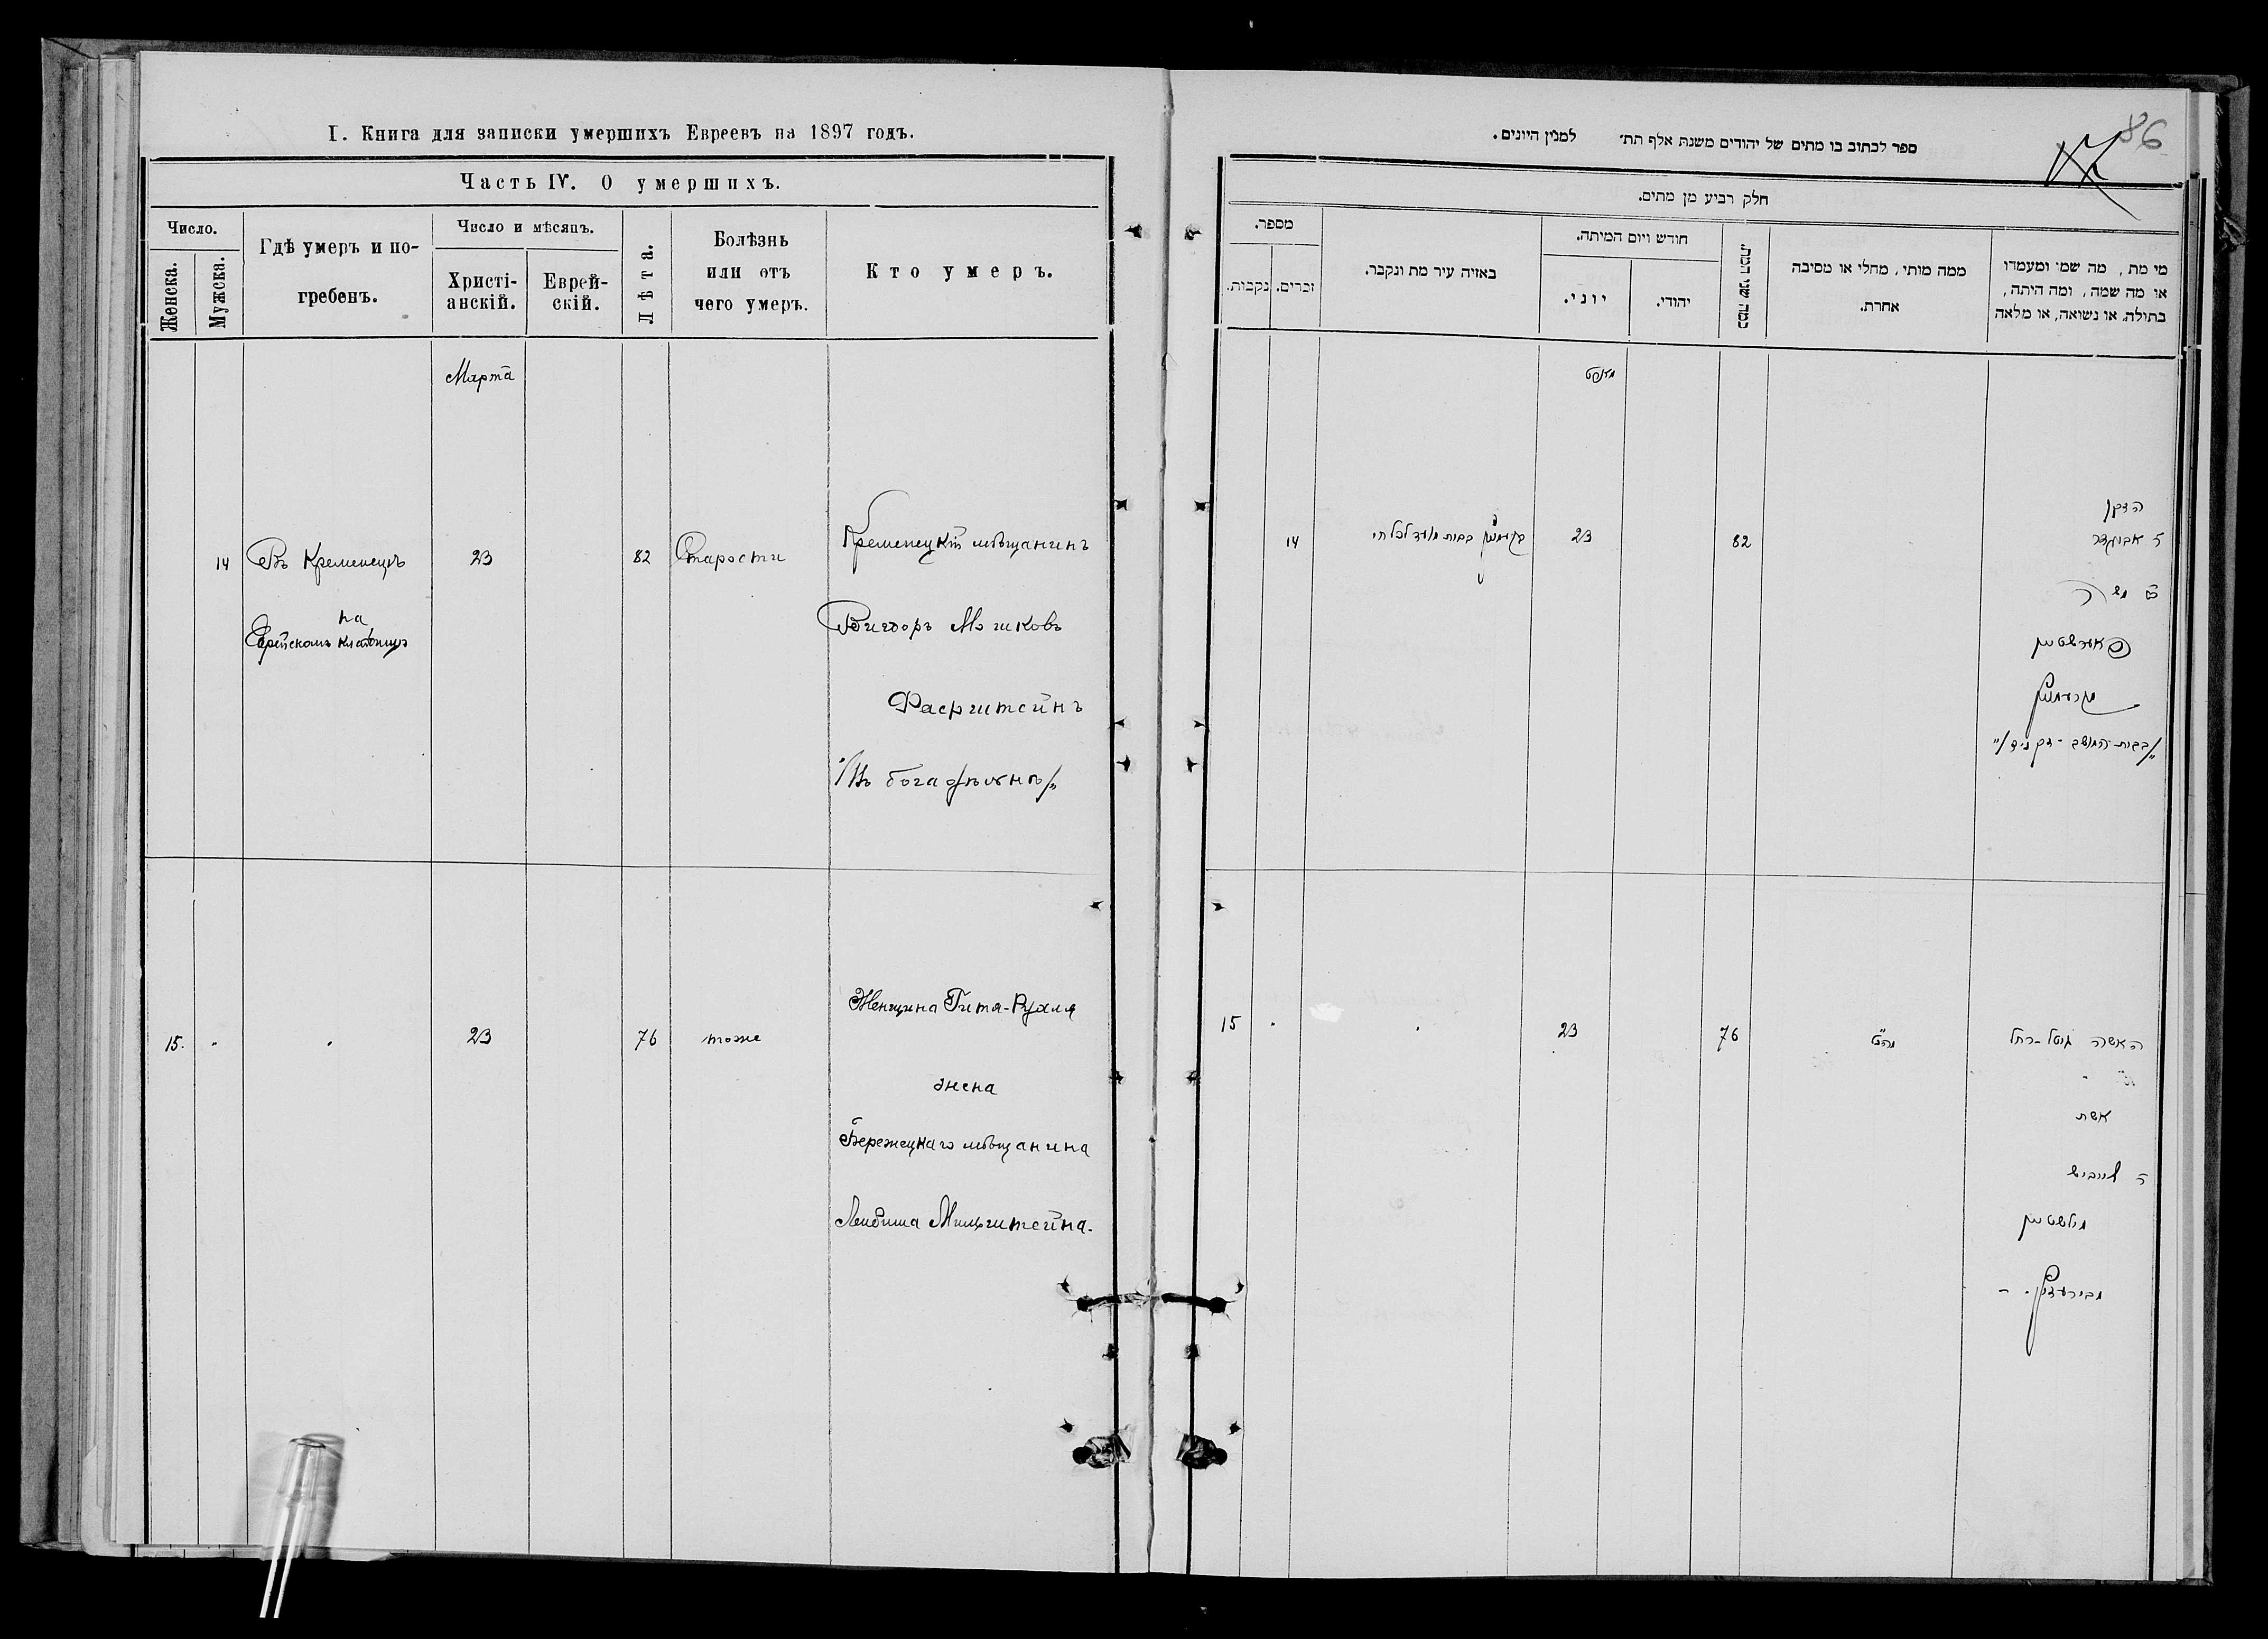 I. Книга для записки умершихъ Евреевъ на 1897 годъ.
Часть IV. О умершихъ.
Число.
Женска.
Мужска.
Гдѣ умеръ и по-
гребенъ.
Число и мѣсяцъ.
Христі-
анскій.
Еврей-
скій.
Лѣта.
Болѣзнь
или отъ
чего умеръ.
Кто умеръ.
Марта
14
Въ Кременецѣ
на
Еврейскомъ кладбищѣ
23
82
Старости
Кременецкій мѣщанинъ
Вигдоръ Мошковъ
Фаерштейнъ
"/Въ богадѣльнѣ/"
15.
"
"
23
76
тоже
Женщина Гитя-Рухля
жена
Бережецкаго мѣщанина
Лейбиша Мильштейна.
86
ספר לכתוב בו מתים של יהודים משנת אלף תת׳ למנין היונים.
חלק רביע מן מתים.
מספר.
נקבות.
זכרים.
באיזה עיר מת ונקבר.
חודש ויום המיתה.
יוני.
יהודי.
כמה שני המת.
ממה מותי, מחלי או מסיבה
אחרת.
מי מת, מה שמו ומעמדו
או מה שמה, ומה היתה,
בתולה, או נשואה, או מלאה
מארט
14
בבית מועד לכל חי
23
82
הזקן
ר׳ אביגדר
משה
פאערשטיין
15
"
"
23
76
האשה גיטל-רחל
אשת
ר׳ לייביש
מילשטיין